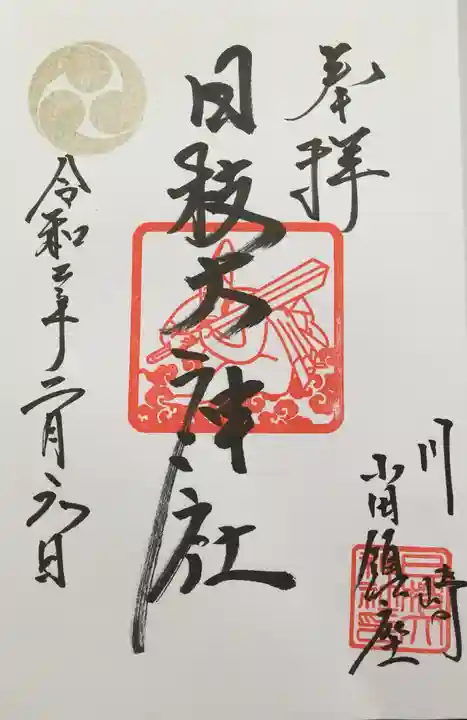 奉拝
川崎
小田鎮座
日枝大神社
令和二年二月日